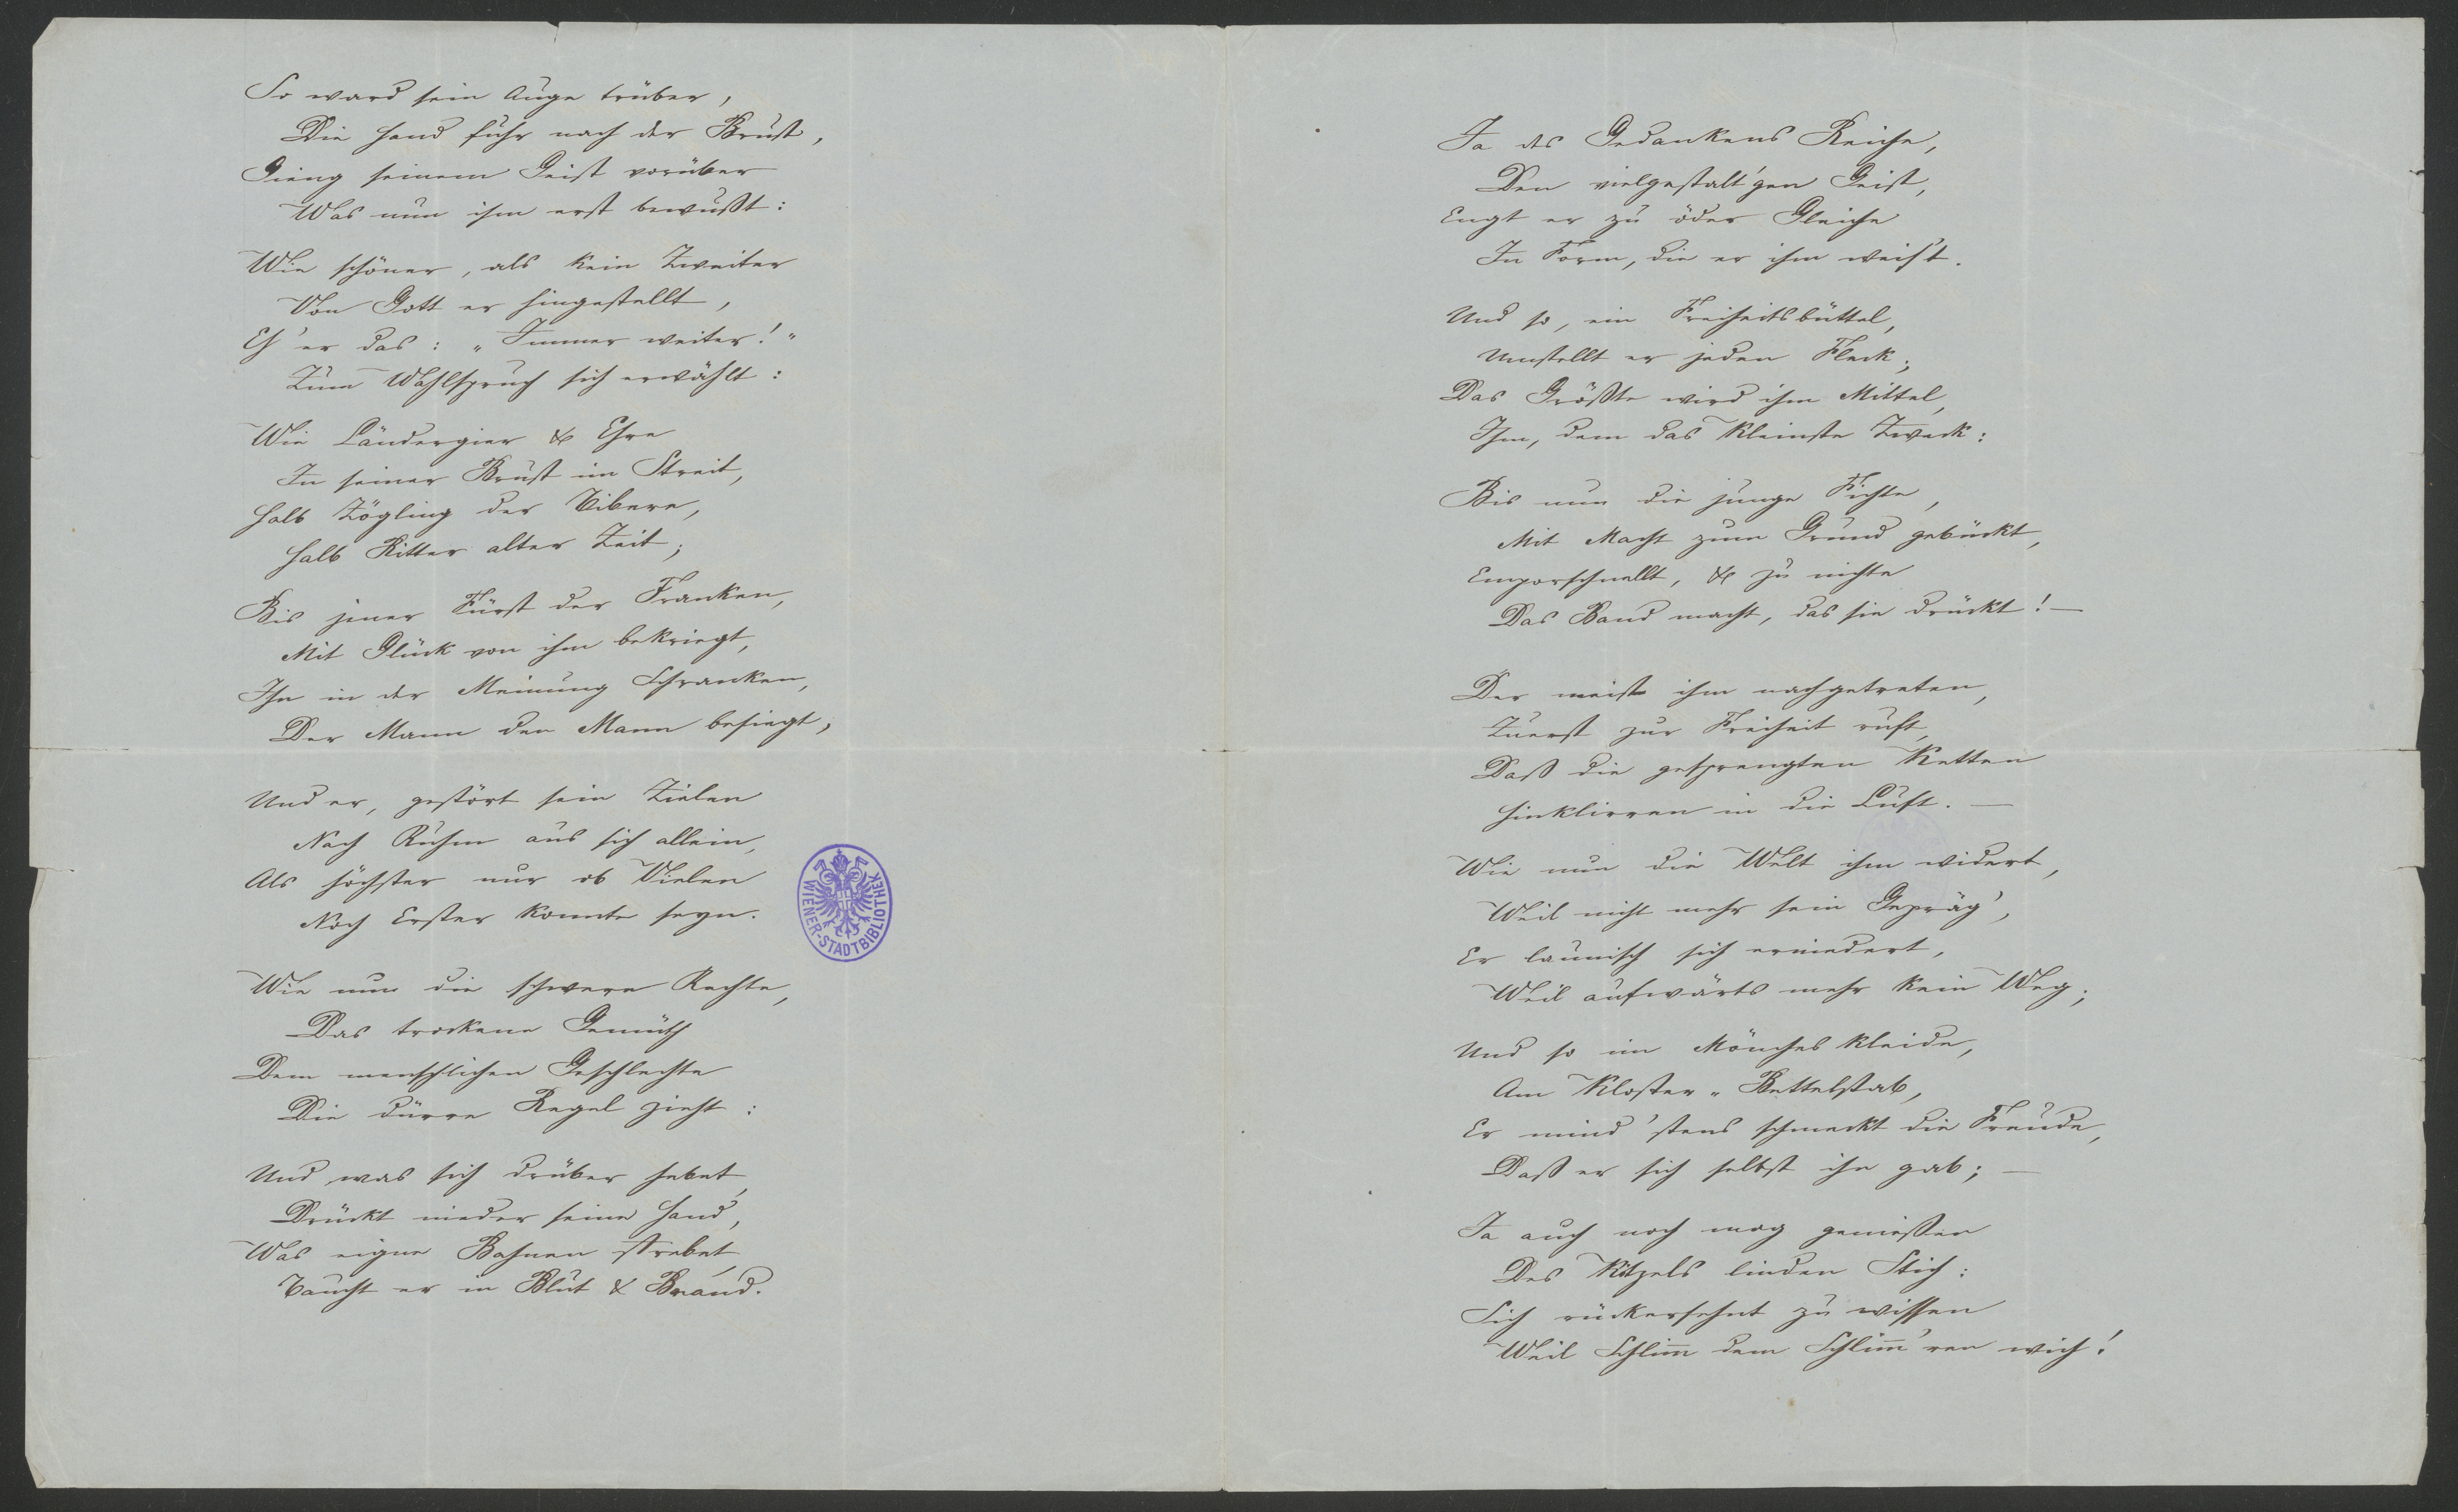 So ward sein Auge trüber,
Die Hand fuhr nach der Brust,
Gieng seinem Geist vorüber
Was nun ihm erst bewußt:
Wie schöner, als kein Zweiter
Von Gott er hingestellt,
Eh' er das: „Immer weiter!"
Zum Wahlspruch sich erwählt:
Wie Ländergier & Ehre
In seiner Brust im Streit,
Halb Zögling der Tibere,
Halb Ritter alter Zeit;
Bis jener Fürst der Franken,
Mit Glück von ihm bekriegt,
Ihn in der Meinung Schranken,
Der Mann den Mann besiegt,
Und er, gestört sein Zielen
Nach Ruhm aus sich allein,
Als höchster nur ob Vielen
Noch Erster konnte seyn.
Wie nun die schwere Rechte,
Das trockene Gemüth
Dem menschlichen Geschlechte
Die dürre Regel zieht:
Und was sich drüber hebet,
Drückt nieder seine Hand,
Was eigne Bahnen strebet,
Taucht er in Blut & Brand.
WIENER-STADTBIBLIOTHEK
Ja des Gedankens Reiche,
Den vielgestalt'gen Geist,
Engt er zu öder Gleiche
In Form, die er ihm weis't.
Und so, ein Freiheitsbüttel,
Umstellt er jeden Fleck;
Das Größte wird ihm Mittel,
Ihm, dem das Kleinste Zweck:
Bis nun die junge Fichte,
Mit Macht zum Grund gebückt,
Emporschnellt, & zu nichte
Das Band macht, das sie drückt! —
Der meist ihm nachgetreten,
Zuerst zur Freiheit ruft,
Daß die gesprengten Ketten
Hinklirren in die Luft. —
Wie nun die Welt ihm widert,
Weil nicht mehr sein Gepräg',
Er launisch sich erniedert,
Weil aufwärts mehr kein Weg;
Und so im Mönches kleide,
Am Kloster-Bettelstab,
Er mind'stens schmeckt die Freude,
Daß er sich selbst ihn gab; —
Ja auch noch mag genießen
Des Kitzels linden Stich:
Sich rückersehnt zu wissen
Weil Schlim̅ dem Schlim̅'ren wich!